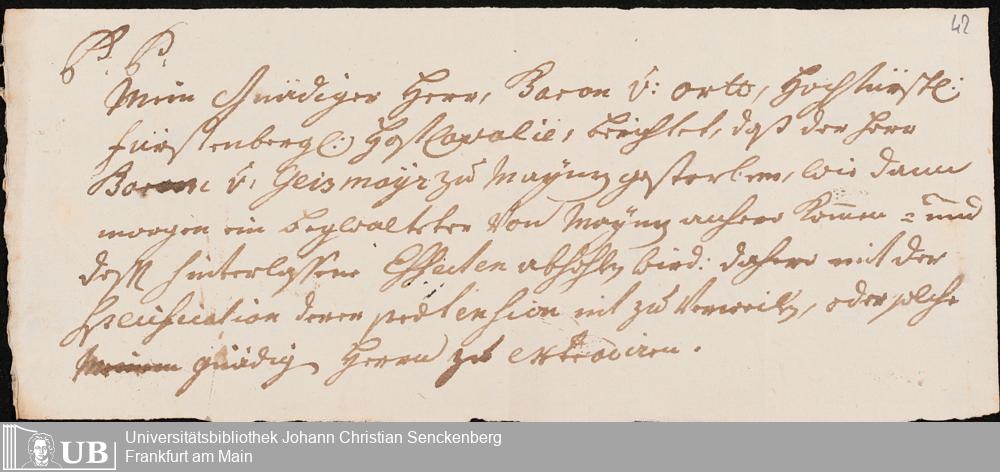 42
P. P.
Mein Gnädiger Herr, Baron v: Ortt, Hochfürstl:
fürstenbergl: berichtet, daß der Herr
Baron v: Geismayr zu Maÿnz gestorben, wie dann
morgen ein von Maÿnz anhero kommen = und
deßen hinterlaßene Effecten wird: dahero mit der
Specification derer nit zu verweilen, oder solche
Meinem gnädigen Herrn zu extradiren.
UB
Universitätsbibliothek Johann Christian Senckenberg
Frankfurt am Main